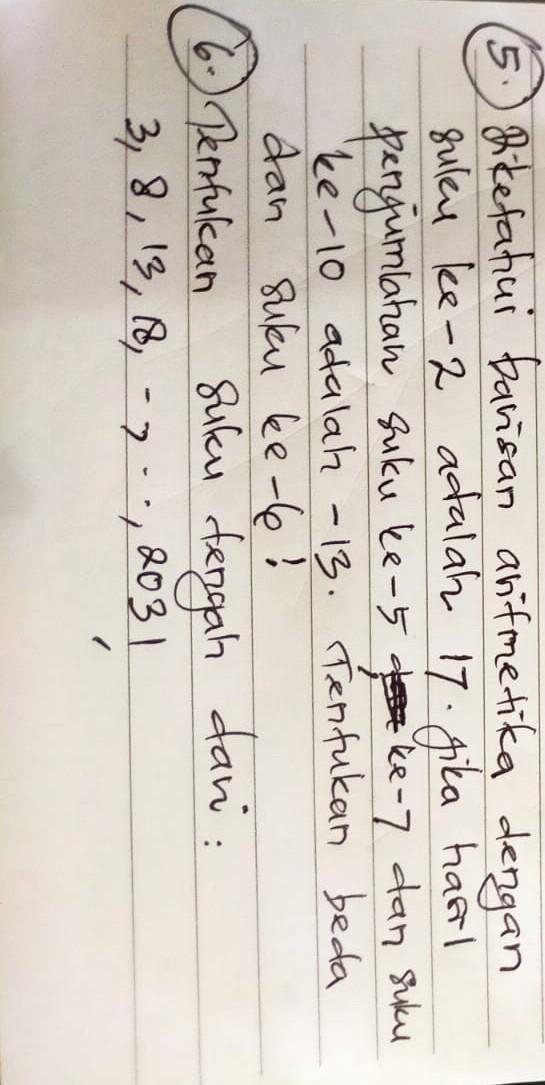 5. Diketahui barisan aritmetika dengan
suku ke-2 adalah 17. Jika hasil
penjumlahan suku ke-5, ke-7 dan suku
ke-10 adalah -13. Tentukan beda
dan suku ke-6!
6. Tentukan suku tengah dari :
3, 8, 13, 18, - , . . , 2031